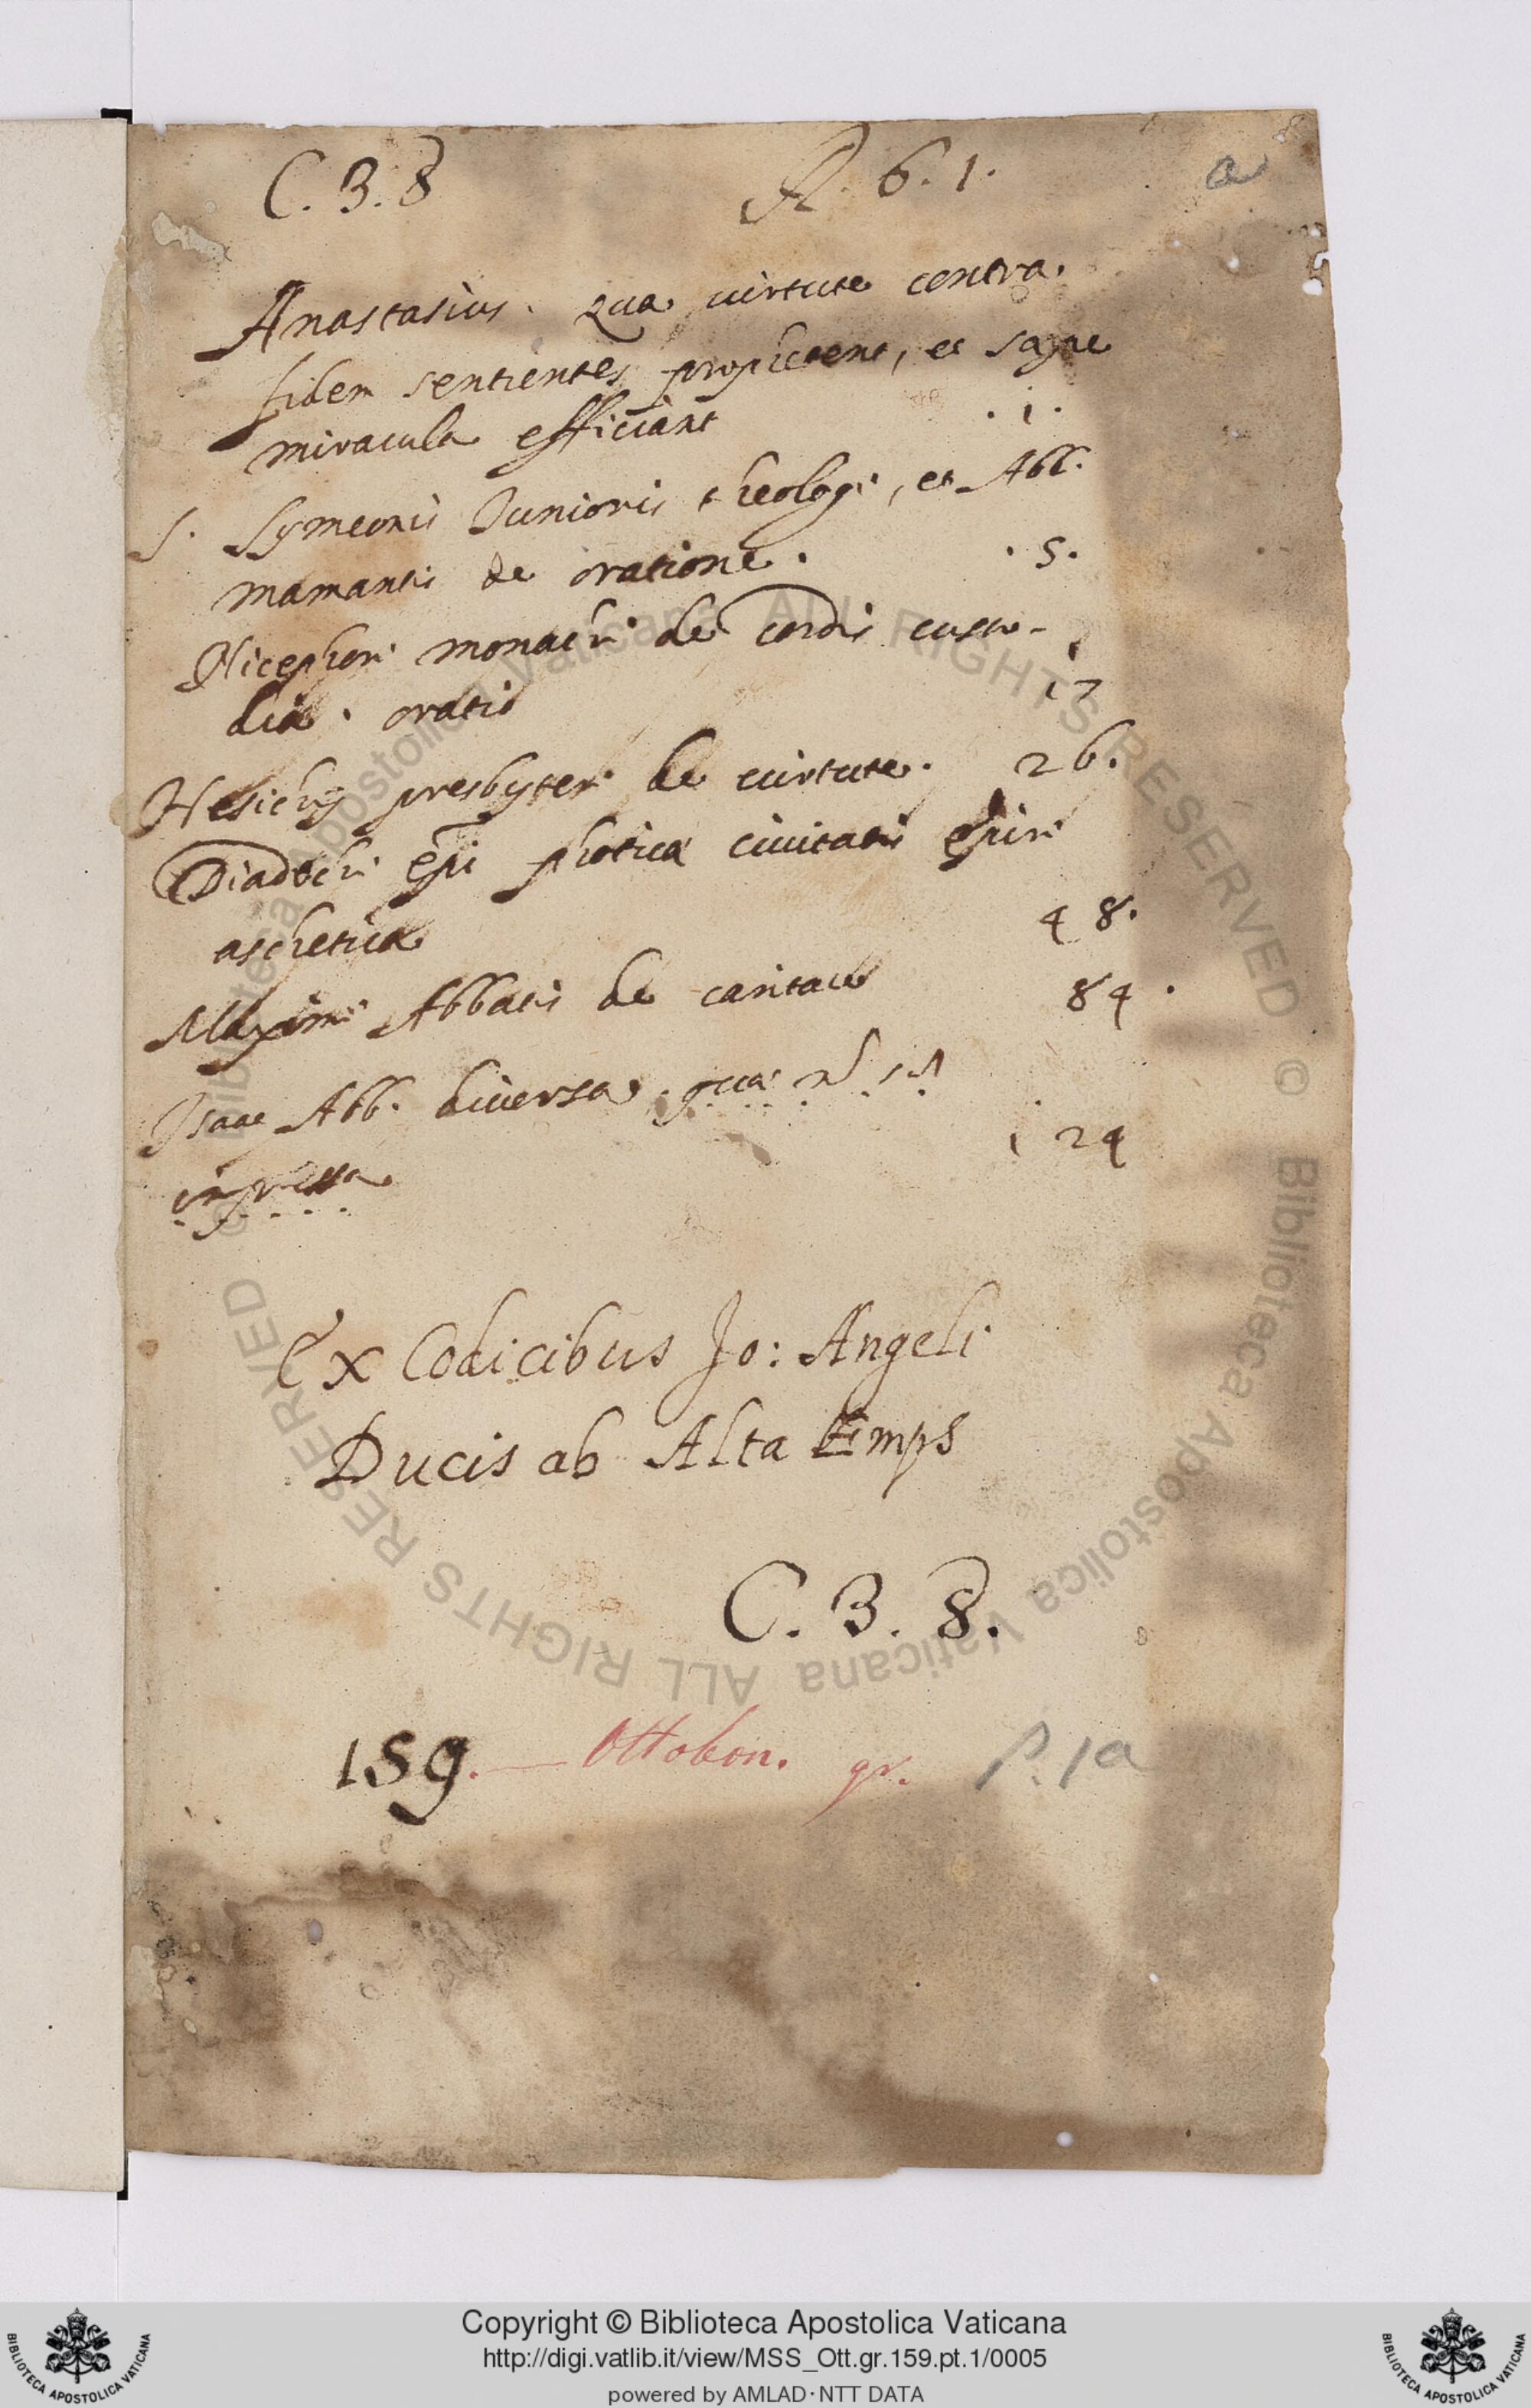 C. 3. 8 R. 6. 1. a
Anastasius. Qua virtute contra
fidem sentientes prophetent, et sæpe
miracula efficiant . 1 .
S. Symeonis Iunioris theologi, et Abb.
mamantis de oratione. . 5.
Nicephori monachi de cordis custo-
dia. oratio 17
Hesichij presbyteri de virtute. 26.
Diadochi epi photicæ civitatis epiri
aschetica 48.
Maximi Abbatis de caritate 84.
Isaac Abb. diversa. quæ
impressa 124
Ex Codicibus Jo: Angeli
Ducis ab Alta Emps
C. 3. 8.
159. — Ottobon. gr. P. 1a
Copyright © Biblioteca Apostolica Vaticana
http://digi.vatlib.it/view/MSS_Ott.gr.159.pt.1/0005
powered by AMLAD·NTT DATA
BIBLIOTECA APOSTOLICA VATICANA
BIBLIOTECA APOSTOLICA VATICANA
© Biblioteca Apostolica Vaticana ALL RIGHTS RESERVED
© Biblioteca Apostolica Vaticana ALL RIGHTS RESERVED